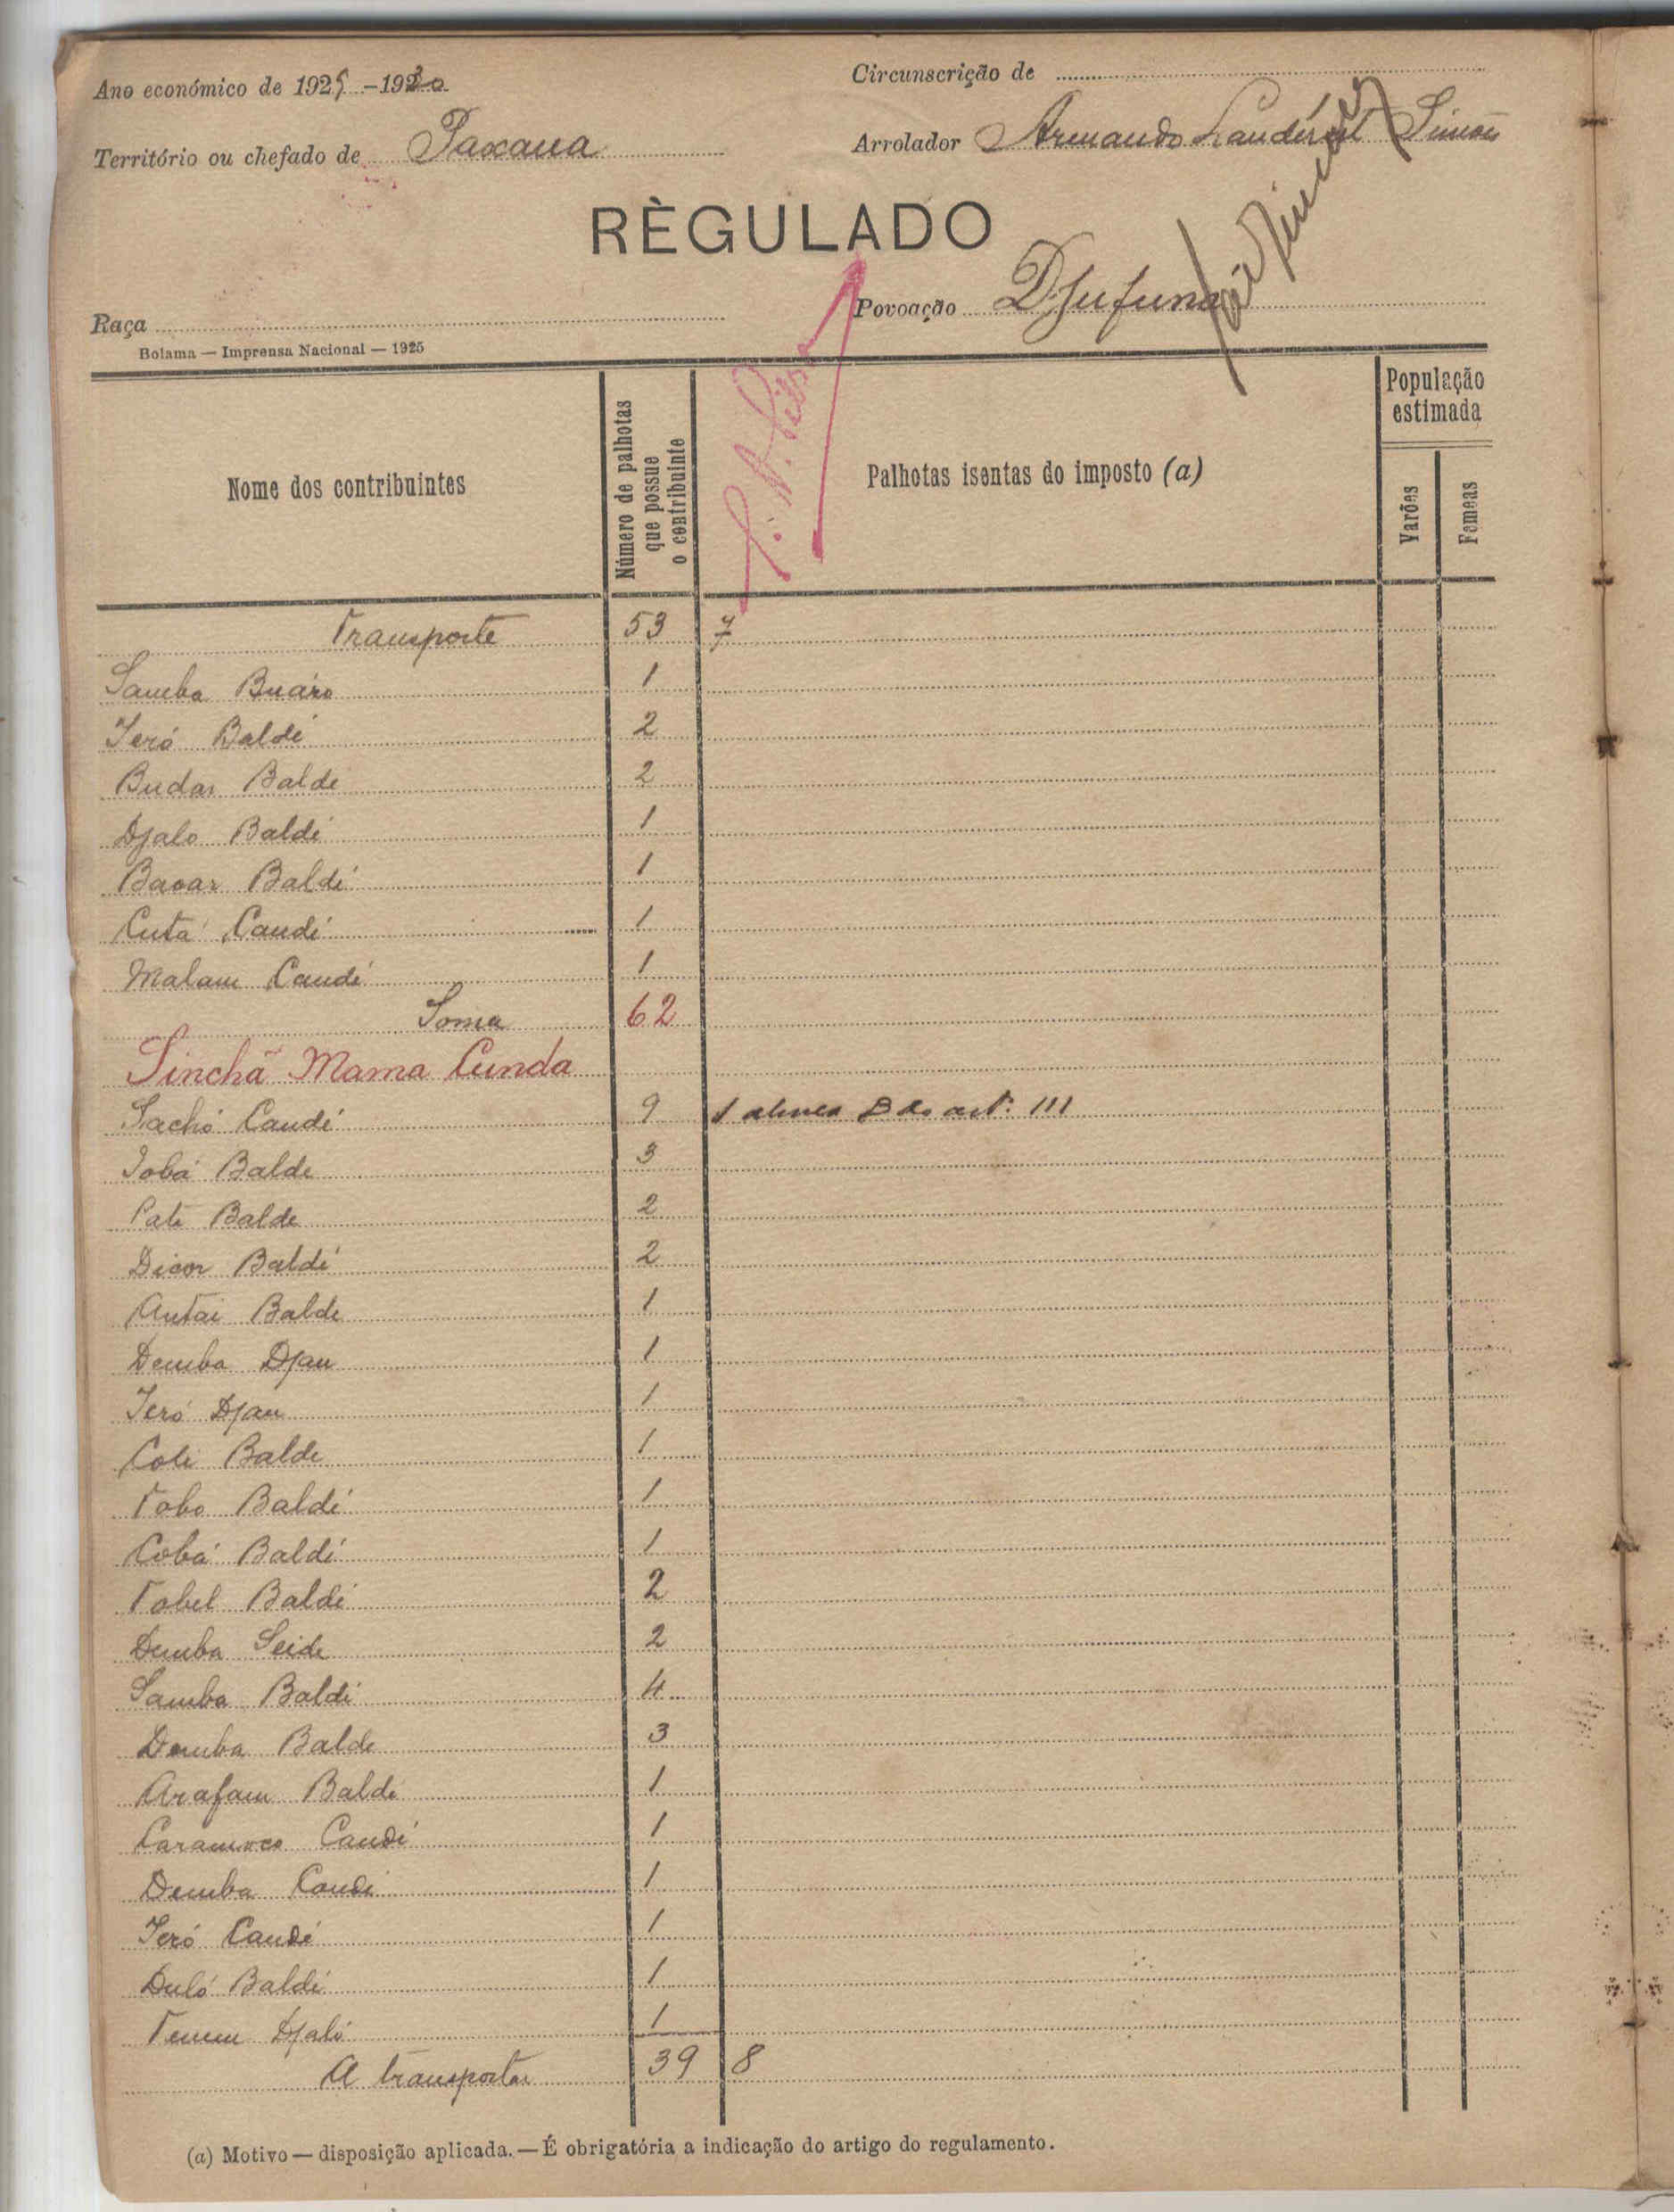 Ano económico de 1929-1930
Circunscrição de
Território ou chefado de Paxana
Arrolador Armando Simões
RÈGULADO
Raça
Povoação Djufuna
Bolama — Imprensa Nacional — 1925
Nome dos contribuintes
Número de palhotas que possue o contribuinte
Palhotas isentas do imposto (a)
População estimada
Varões
Femeas
Transporte 53 7
Samba Buáro 1
Jeró Baldé 2
Budar Balde 2
Djalo Baldé 1
Bavar Baldé 1
Cutá Candé 1
Malam Candé 1
Soma 62
Sinchã Mama Cunda
Sachó Candé 9 1 alinea B do art.º 111
Jobá Balde 3
Pate Balde 2
Dicor Baldé 2
Antai Balde 1
Demba Djau 1
Jeró Djau 1
Coli Balde 1
Tobo Baldé 1
Cobá Baldé 1
Tobel Baldé 2
Demba Seide 2
Samba Baldé 4
Demba Balde 3
Arafam Balde 1
Caramoco Candé 1
Demba Candé 1
Jeró Candé 1
Duló Baldé 1
Temem Djaló 1
A transportar 39 8
(a) Motivo — disposição aplicada. — É obrigatória a indicação do artigo do regulamento.